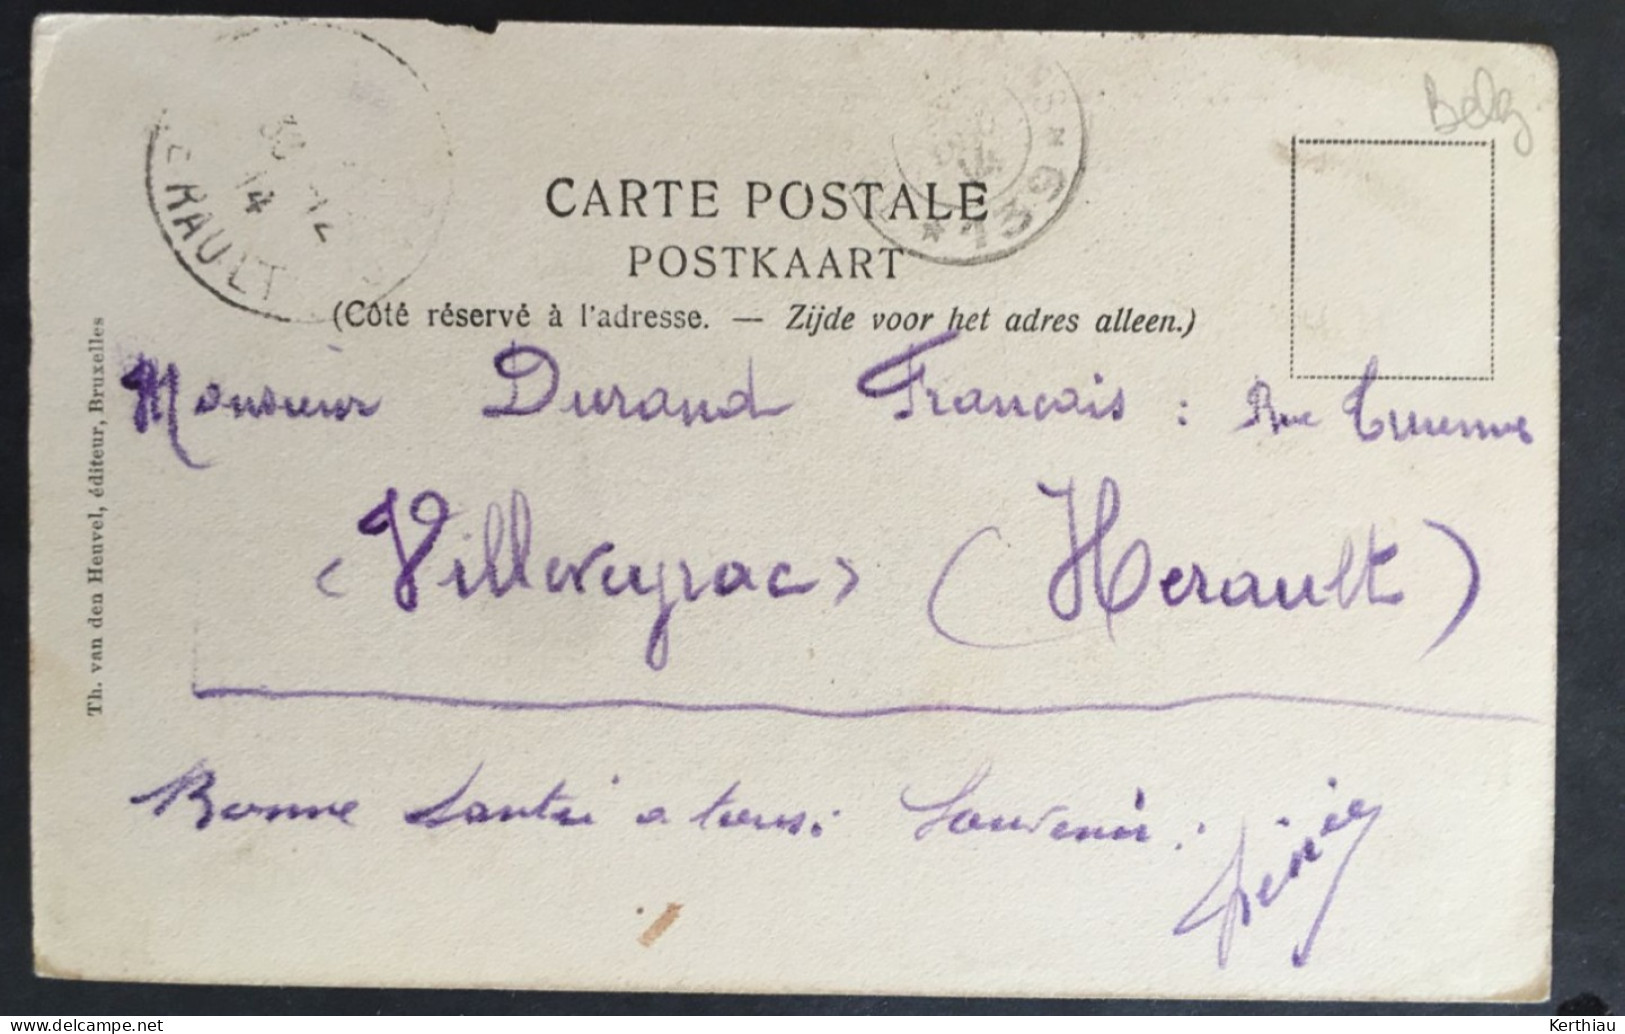 Belg
CARTE POSTALE
POSTKAART
(Côté réservé à l'adresse. — Zijde voor het adres alleen.)
Monsieur Durand Francais : Rue Turenne
<Villeveyrac> (Herault)
Bonne Santéi a tous: Souvenir:
Th. van den Heuvel, éditeur, Bruxelles
30 -12
14
ERAULT
* 139 *
delcampe.net
Kerthiau